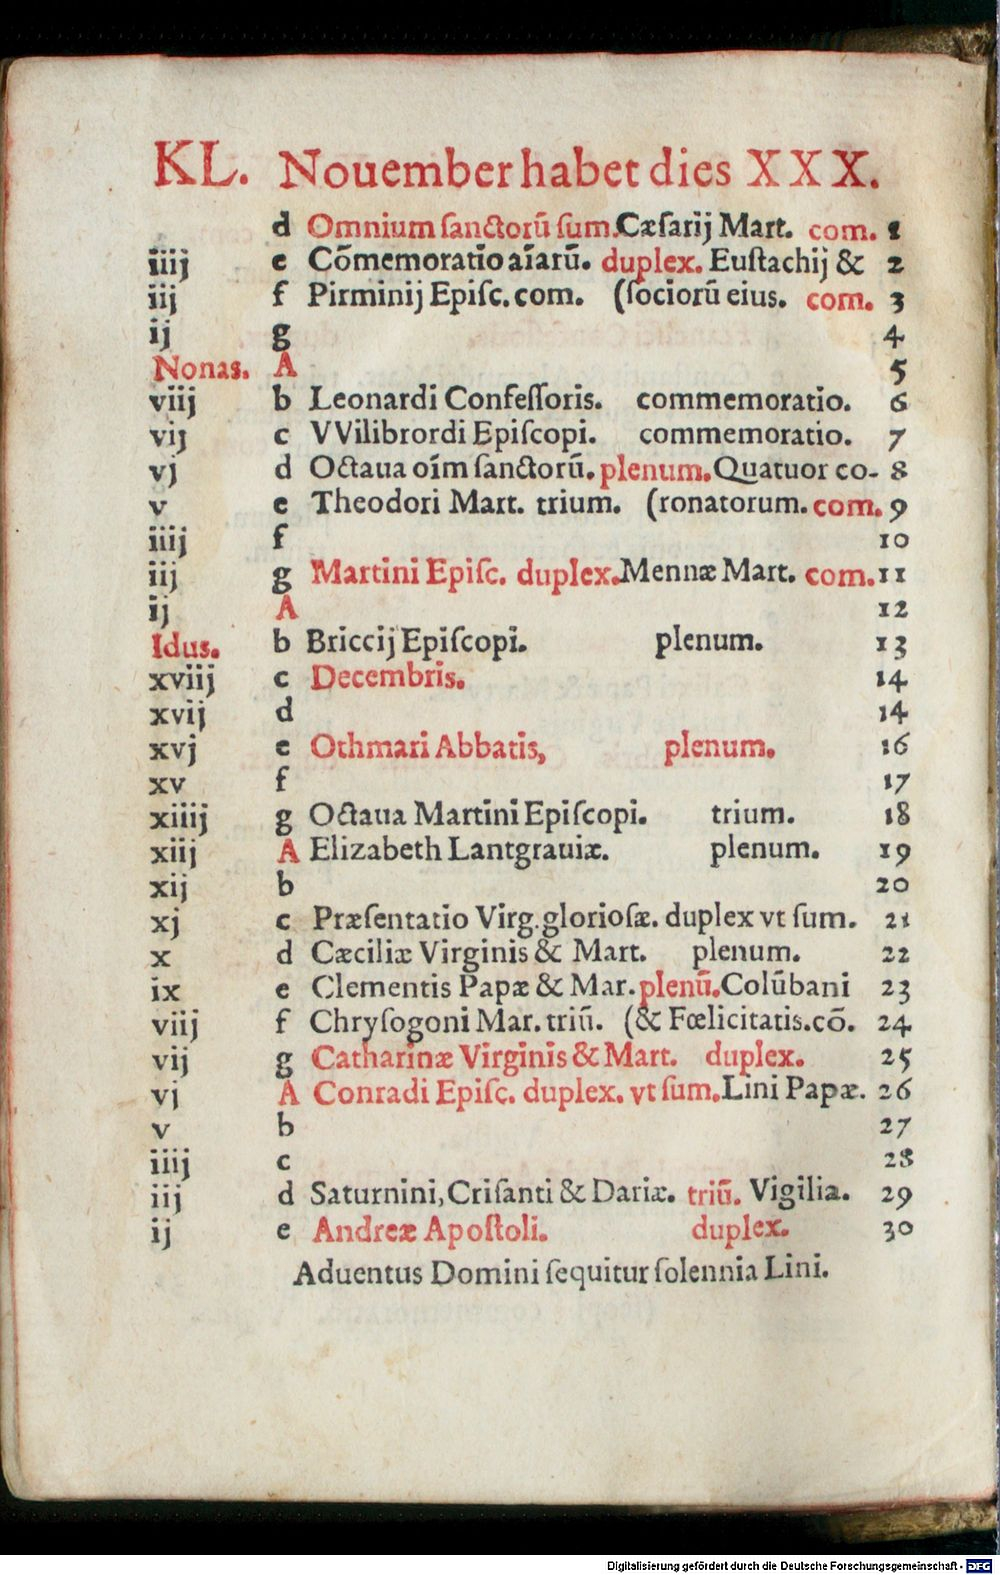 KL. Nouember habet dies XXX.
d Omnium ſanctorū ſum. Cæſarij Mart. com. 1
iiij e Cōmemoratio aīarū. duplex. Euſtachij & 2
iij f Pirminij Epiſc. com. (ſociorū eius. com. 3
ij g 4
Nonas. A 5
viij b Leonardi Confeſſoris. commemoratio. 6
vij c VVilibrordi Epiſcopi. commemoratio. 7
vj d Octaua oīm ſanctorū. plenum. Quatuor co- 8
v e Theodori Mart. trium. (ronatorum. com. 9
iiij f 10
iij g Martini Epiſc. duplex. Mennæ Mart. com. 11
ij A 12
Idus. b Briccij Epiſcopi. plenum. 13
xviij c Decembris. 14
xvij d 14
xvj e Othmari Abbatis, plenum. 16
xv f 17
xiiij g Octaua Martini Epiſcopi. trium. 18
xiij A Elizabeth Lantgrauiæ. plenum. 19
xij b 20
xj c Præſentatio Virg. glorioſæ. duplex vt ſum. 21
x d Cæciliæ Virginis & Mart. plenum. 22
ix e Clementis Papæ & Mar. plenū. Colūbani 23
viij f Chryſogoni Mar. triū. (& Fœlicitatis. cō. 24
vij g Catharinæ Virginis & Mart. duplex. 25
vj A Conradi Epiſc. duplex. vt ſum. Lini Papæ. 26
v b 27
iiij c 28
iij d Saturnini, Criſanti & Dariæ. triū. Vigilia. 29
ij e Andreæ Apoſtoli. duplex. 30
Aduentus Domini ſequitur ſolennia Lini.
Digitalisierung gefördert durch die Deutsche Forschungsgemeinschaft - DFG